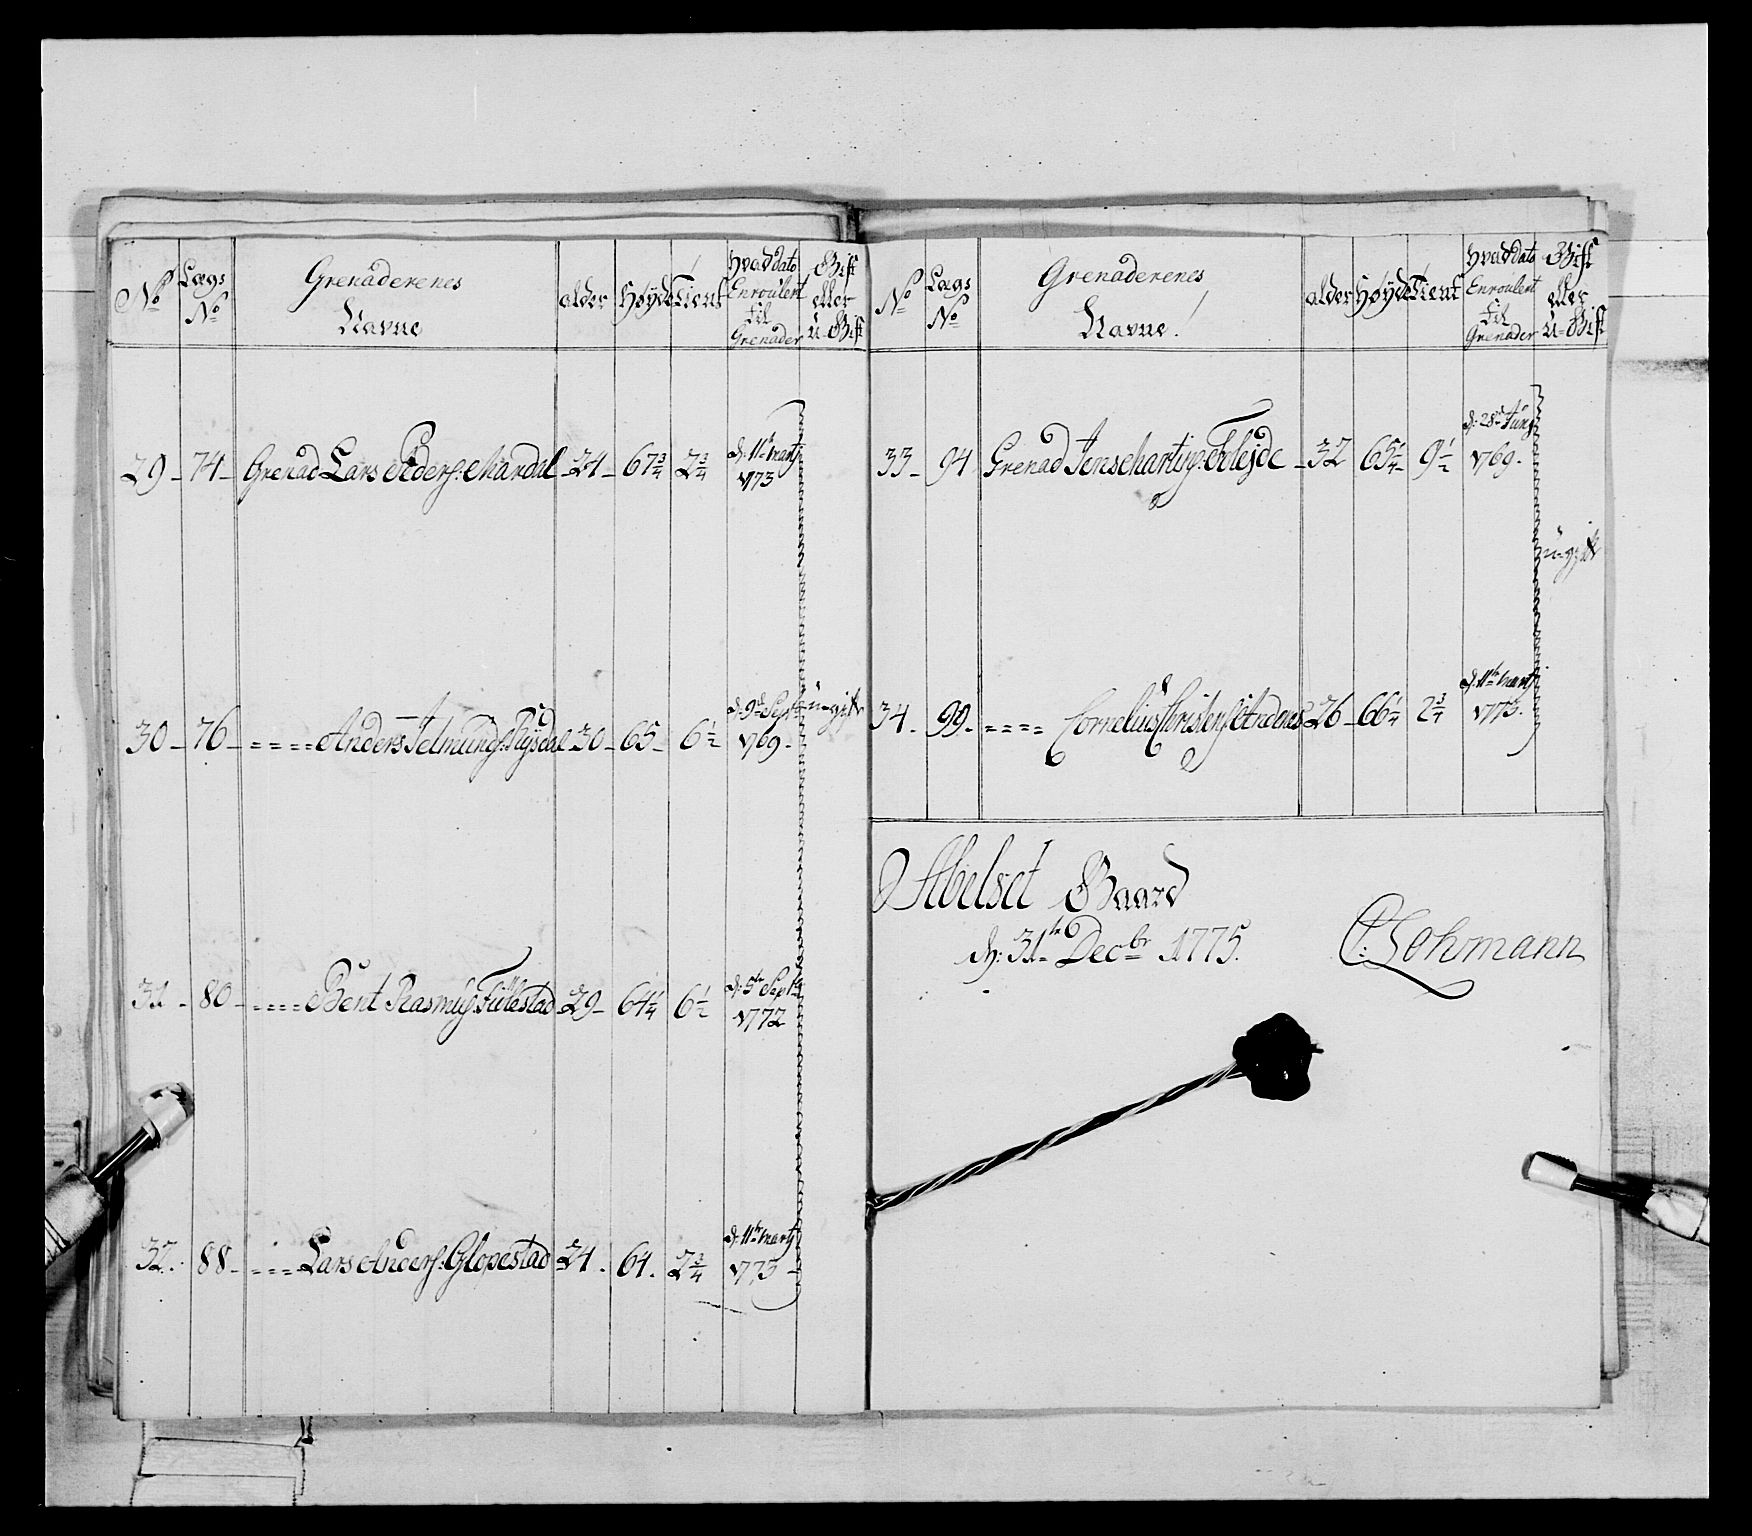 No Lægs No Grenaderenes Navne alder Høyde Tient Hvad dato Enroulert til Grenader Gift eller U-Gift
29 - 74 - Grenad Lars Peders: Mardal - 24 - 67 3/4 2 3/4 d: 11te Martj 1773
30 - 76 - = = = = Anders Jelmunds: Rysdal - 30 - 65 - 6 1/2 d: 9de Sept 1769 - u-gift
31 - 80 - = = = = Bent Rasmuss: - 29 - 64 1/4 6 1/2 d: 5te Septb 1772
32. 88 - = = = Lars Anders: Glopestad 24. 64. 2 3/4 d: 11te Martj 1773 -
No Lægs No Grenaderenes Navne! alder Høyde Tient Hvad dato Enroulert til Grenader Gift eller U-Gift
33 - 94 Grenad Jens Flejde - 32 65 1/4 9 1/2 d: 28de Junj 1769.
u-gift
34. 99. = = = = Cornelius Christens: Andenes 26 - 66 1/4 2 3/4 d: 11te Martj 1773.
Abelset Gaard
d: 31te Decbr 1775.
C: Lohmann